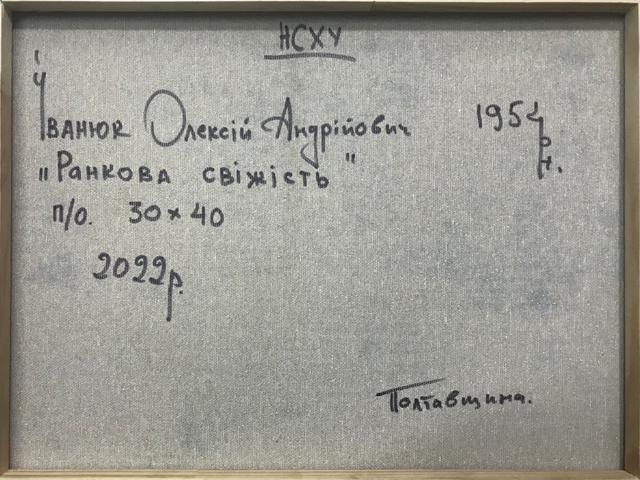 НСХУ
Іванюк Олексій Андрійович 1954 р.н.
"Ранкова свіжість"
п/о. 30×40
2022р.
Полтавщина.